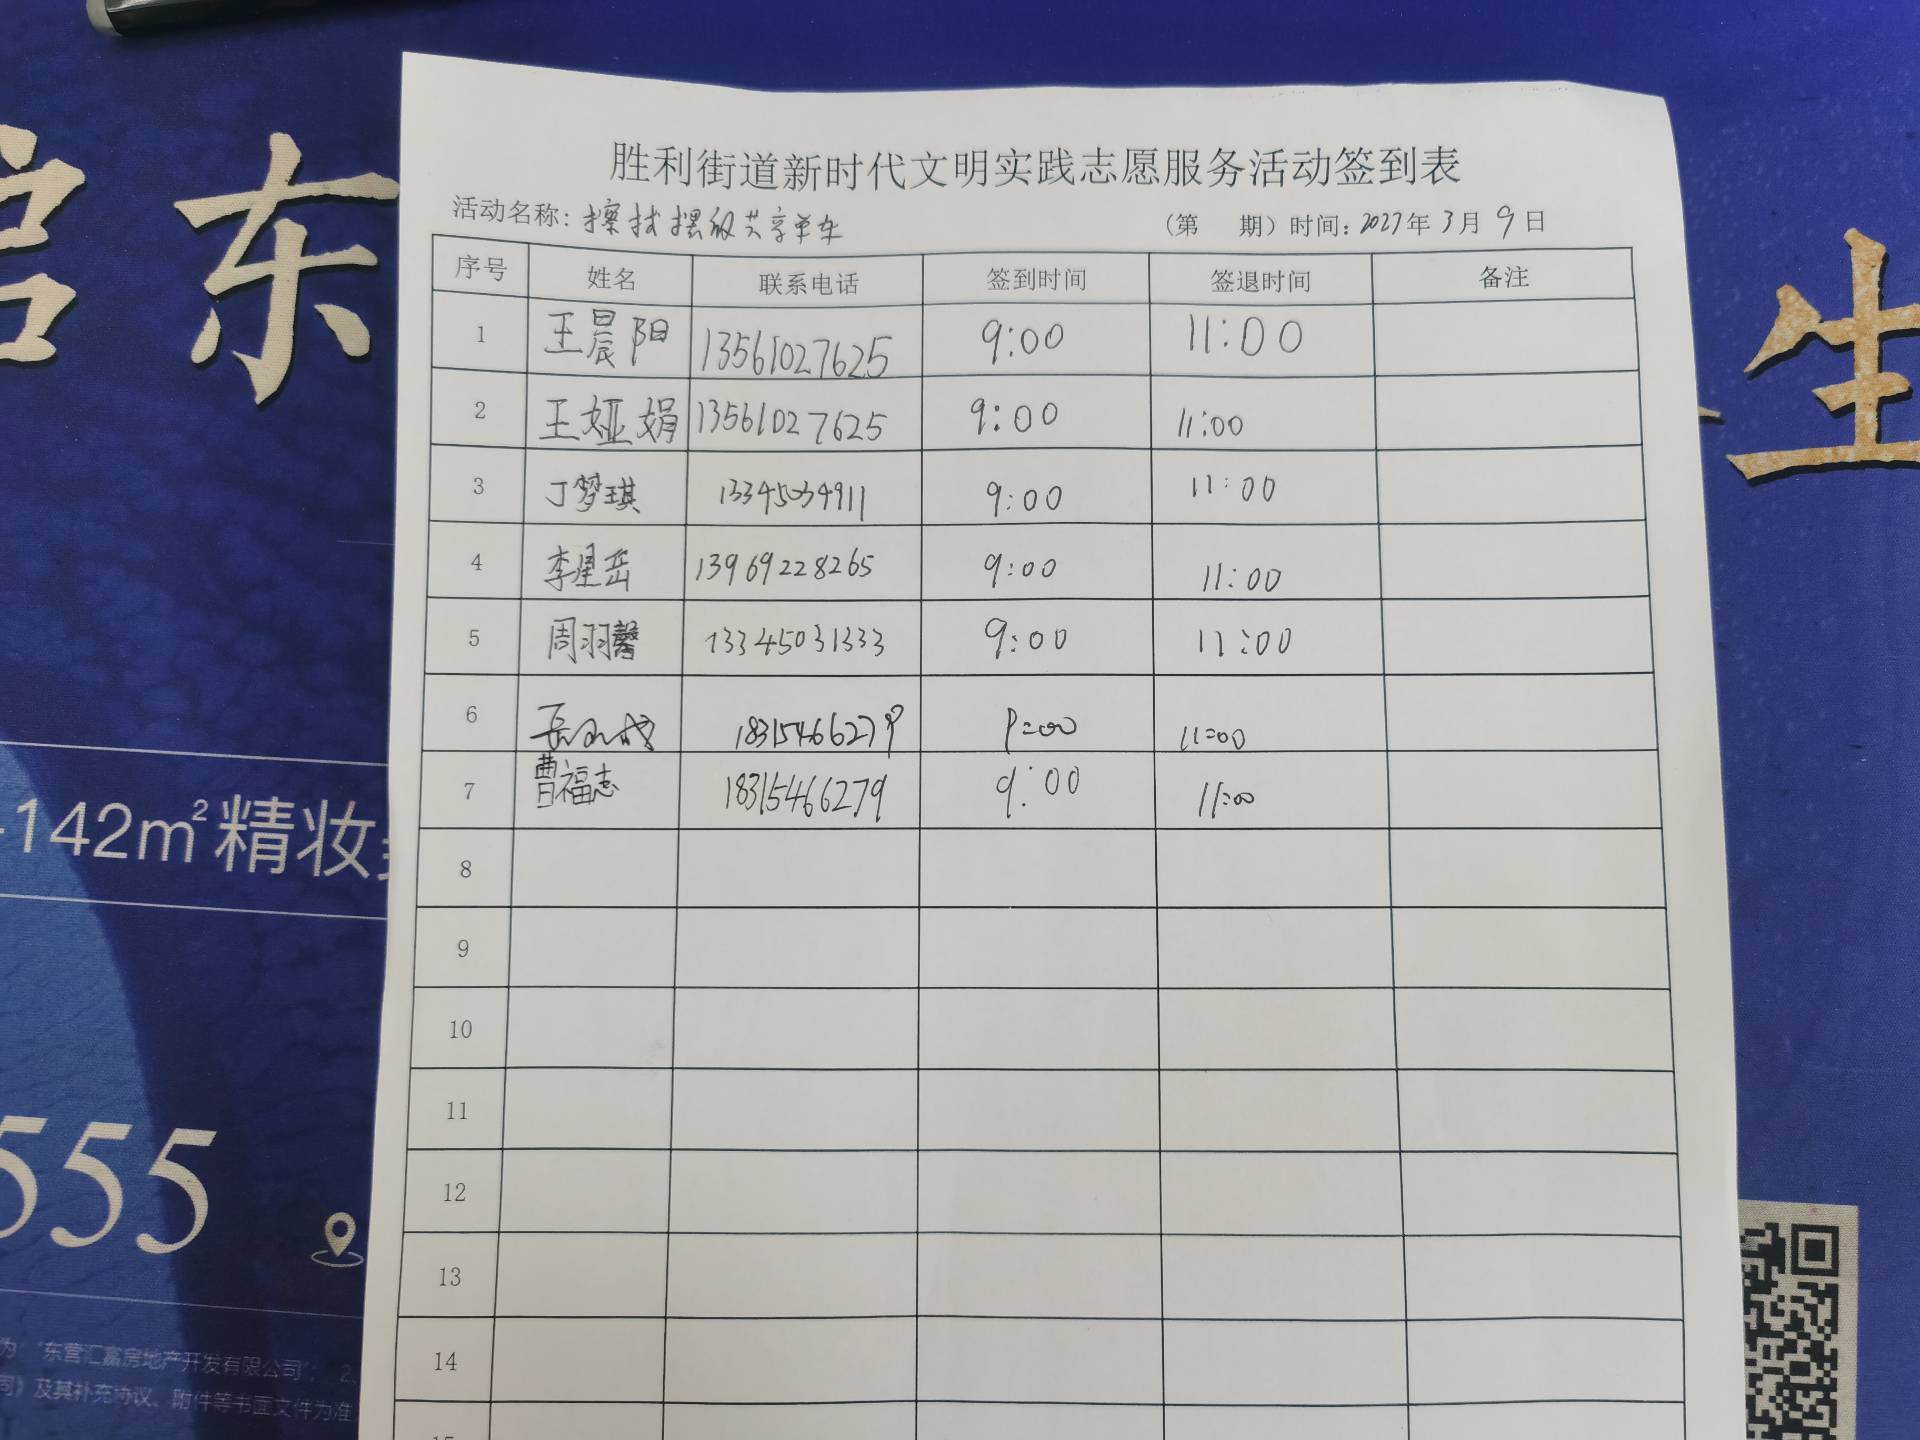 胜利街道新时代文明实践志愿服务活动签到表
活动名称：擦拭摆放共享单车 （第 期）时间：2027年3月9日
序号 姓名 联系电话 签到时间 签退时间 备注
1 王晨阳 13561027625 9:00 11:00
2 王娅娟 13561027625 9:00 11:00
3 丁梦琪 13345034911 9:00 11:00
4 李星岳 13969228265 9:00 11:00
5 周羽馨 13345031333 9:00 11:00
6 18315466279 9:00 11:00
7 曹福志 18315466279 9:00 11:00
8
9
10
11
12
13
14
东
生
142m²精妆
555
为“东营汇富房地产开发有限公司”； 2、
及其补充协议、附件等书面文件为准